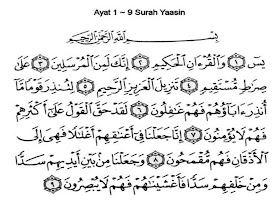 Ayat 1 ~ 9 Surah Yaasin
بِسْمِ اللَّهِ الرَّحْمَٰنِ الرَّحِيمِ
يسٓ ﴿١﴾ وَالْقُرْءَانِ الْحَكِيمِ ﴿٢﴾ إِنَّكَ لَمِنَ الْمُرْسَلِينَ ﴿٣﴾ عَلَىٰ
صِرَاطٍ مُّسْتَقِيمٍ ﴿٤﴾ تَنزِيلَ الْعَزِيزِ الرَّحِيمِ ﴿٥﴾ لِتُنذِرَ قَوْمًا مَّا
أُنذِرَ ءَابَاؤُهُمْ فَهُمْ غَافِلُونَ ﴿٦﴾ لَقَدْ حَقَّ الْقَوْلُ عَلَىٰ أَكْثَرِهِمْ
فَهُمْ لَا يُؤْمِنُونَ ﴿٧﴾ إِنَّا جَعَلْنَا فِي أَعْنَاقِهِمْ أَغْلَالًا فَهِيَ إِلَى
الْأَذْقَانِ فَهُم مُّقْمَحُونَ ﴿٨﴾ وَجَعَلْنَا مِن بَيْنِ أَيْدِيهِمْ سَدًّا
وَمِنْ خَلْفِهِمْ سَدًّا فَأَغْشَيْنَاهُمْ فَهُمْ لَا يُبْصِرُونَ ﴿٩﴾